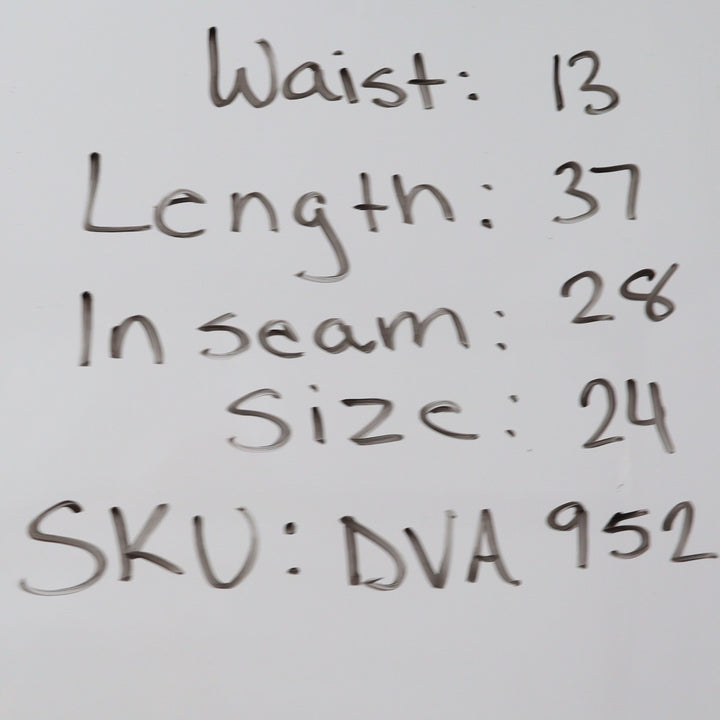 Waist: 13
Length: 37
In seam: 28
Size: 24
SKU: DVA 952